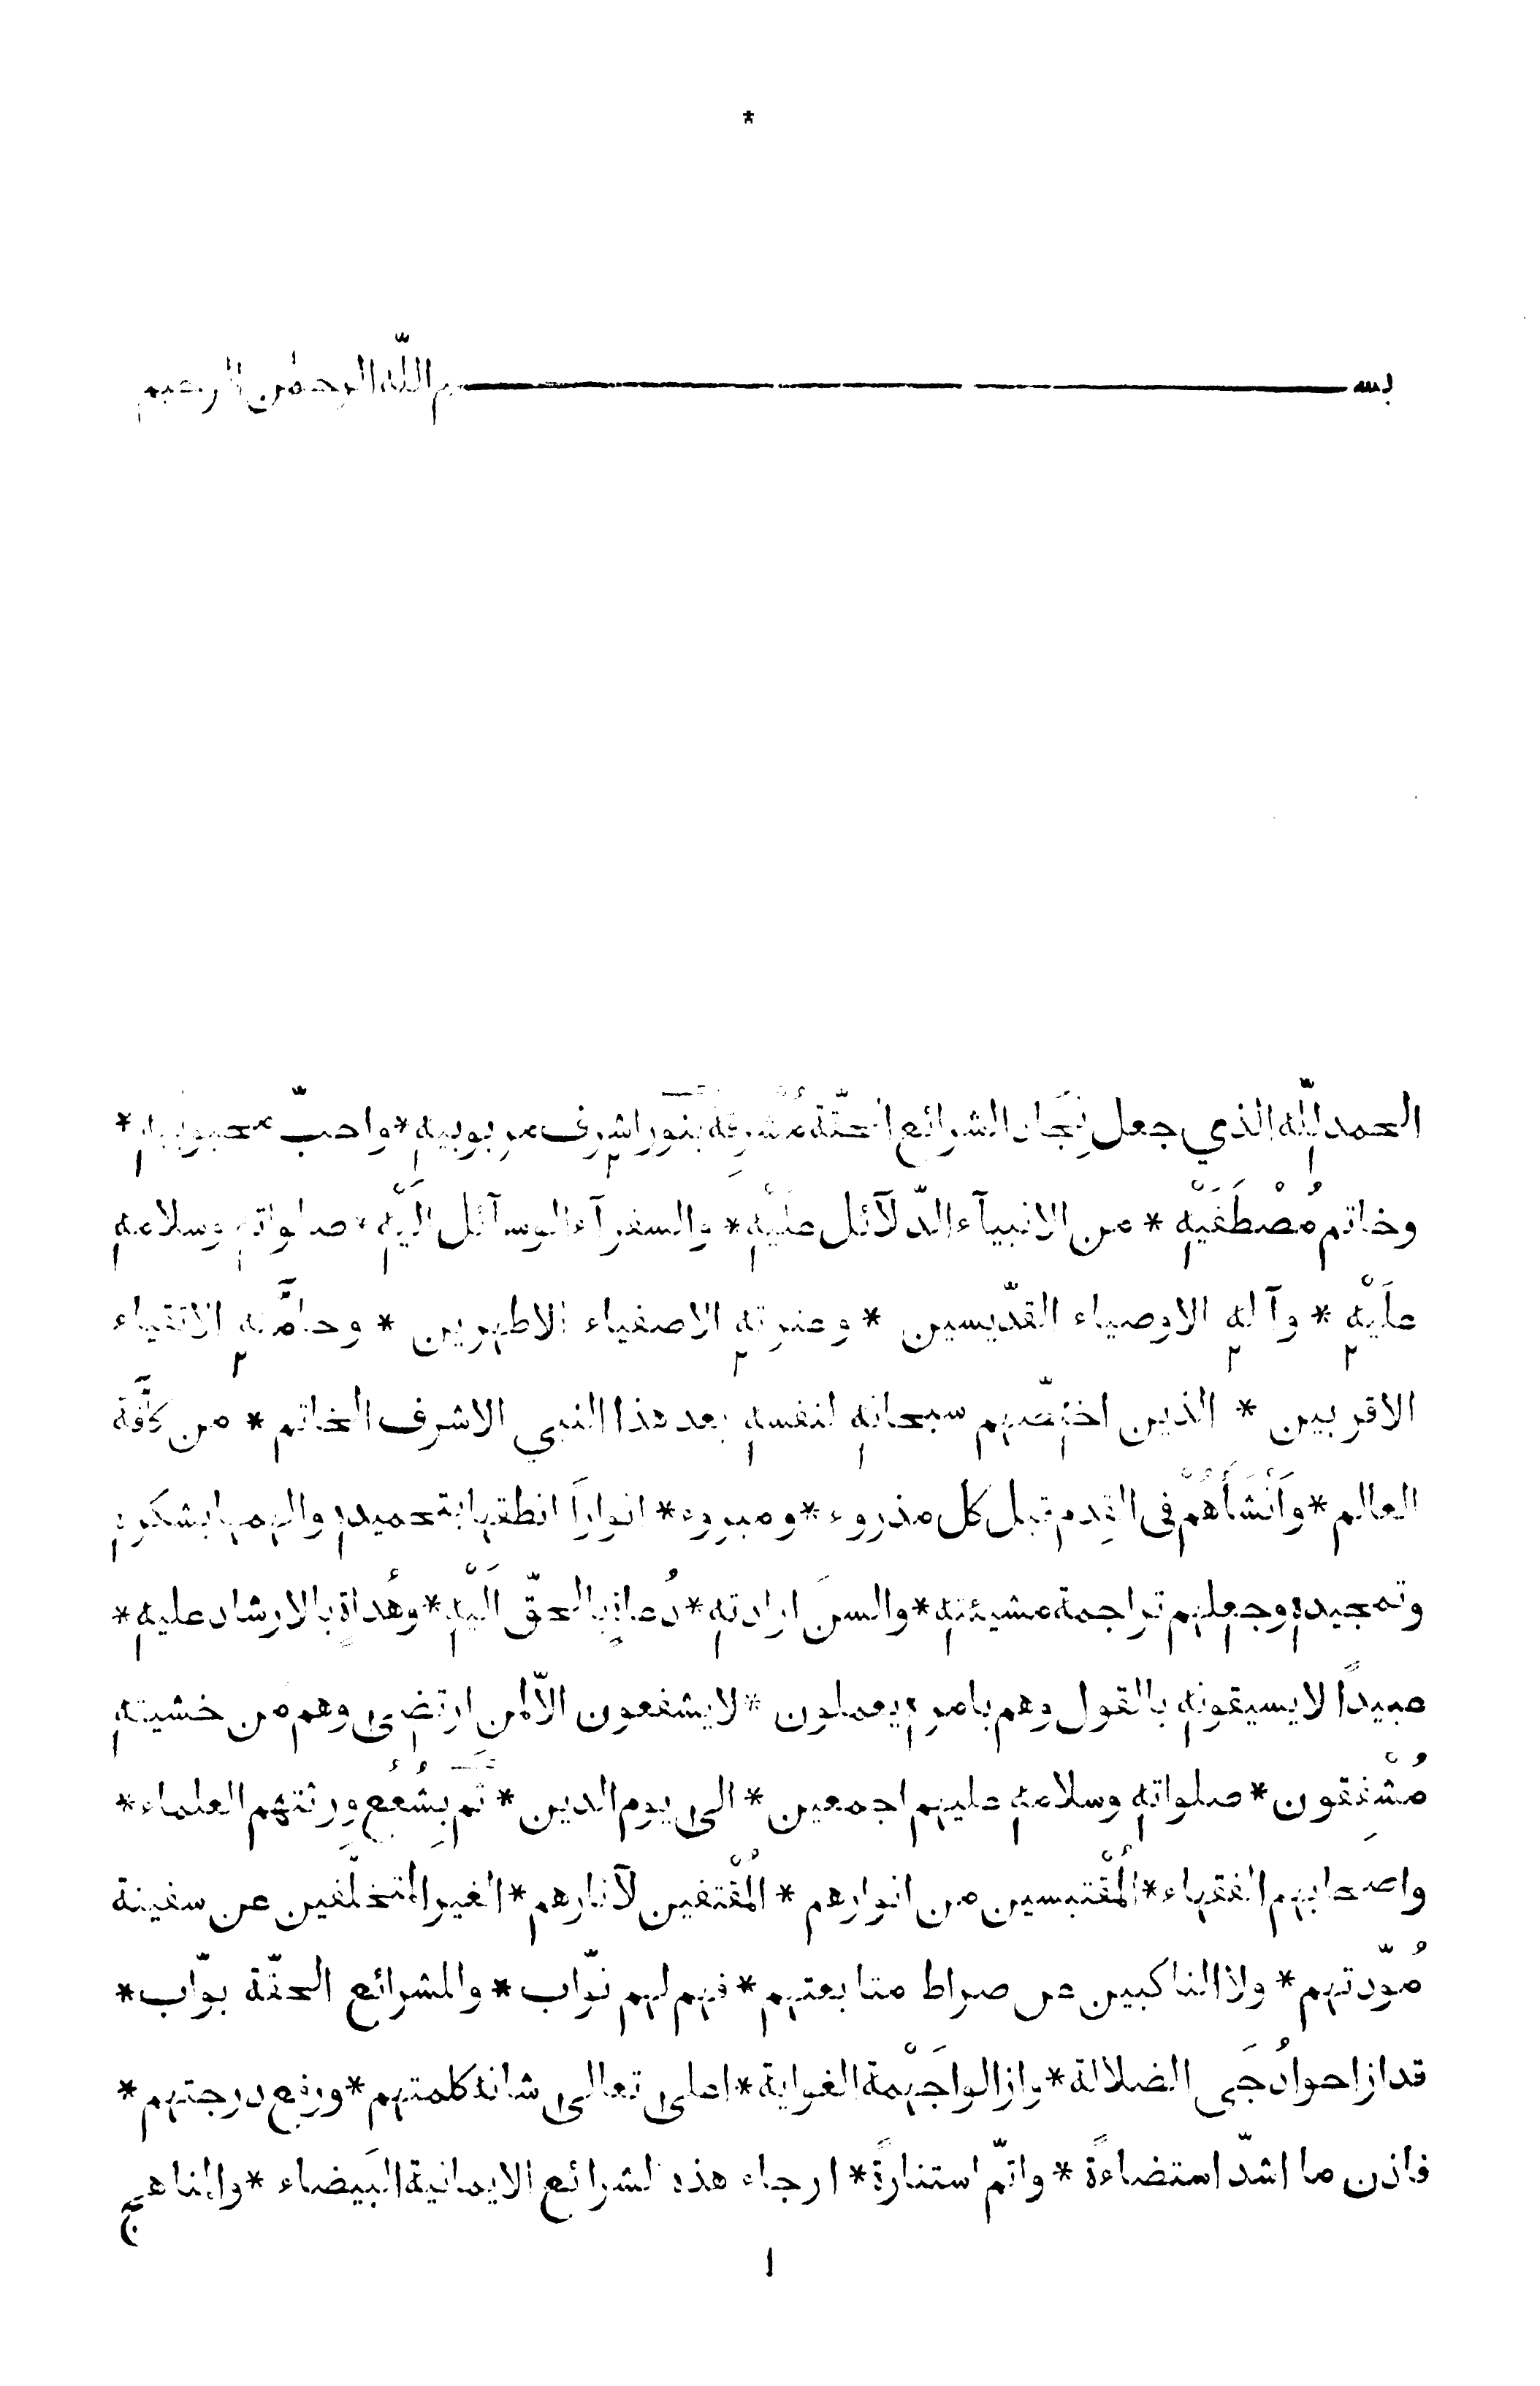 *
بســـــــــــم اللّه الرحمٰن الرحيم
الحمد للّه الذي جعل نِجَاد الشرائع الحقّة مُشْرِقَة بنَوْر اشرف مربوبيه * واحبّ محبوبيه *
وخاتم مُصْطَفَيْه * من الانبيآء الدّلآئل علَيْه * والسفرآء الوسآئل الَيْه * صلواته وسلامه
علَيْه * وآله الاوصياء القدّيسين * وعترته الاصفياء الاطهرين * وحامَّته الاتقياء
الاقربين * الذين اختصّهم سبحانه لنفسه بعد هذا النبي الاشرف الخاتم * من كافَّة
العالم * وَأَنْشَأَهُمْ في القِدم قبل كل مذروء * ومبروء * انواراً انطقها بتحميده والهمها بشكره
وتمجيده وجعلهم تراجمة مشيئته * والسنَ ارادته * دُعاةٍ بالحقّ الَيْه * وهُداةٍ بالارشاد عليه *
عبيداً لا يسبقونه بالقول وهم بامره يعملون * لا يشفعون الاّ لمن ارتضى وهم من خشيته
مُشْفِقون * صلواته وسلامه عليهم اجمعين * الى يوم الدين * ثمَّ بِشُعُعِ ورثتهم العلماء *
واصحابهم الفقهاء * المُقْتبسين من انوارهم * المُقْتفين لآثارهم * الغير المتخلّفين عن سفينة
مُودّتهم * ولا الناكبين عن صراط متابعتهم * فهم لهم نوّاب * وللشرائع الحقّة بوّاب *
قد ازاحوا دُجَى الضلالة * وازالوا جَهْمة الغواية * اعلى تعالى شانه كلمتهم * ورفع درجتهم *
فاذن ما اشدّ استضاءةً * واتمّ استنارةً * ارجاء هذه الشرائع الايمانية البَيضاء * والمناهج
١